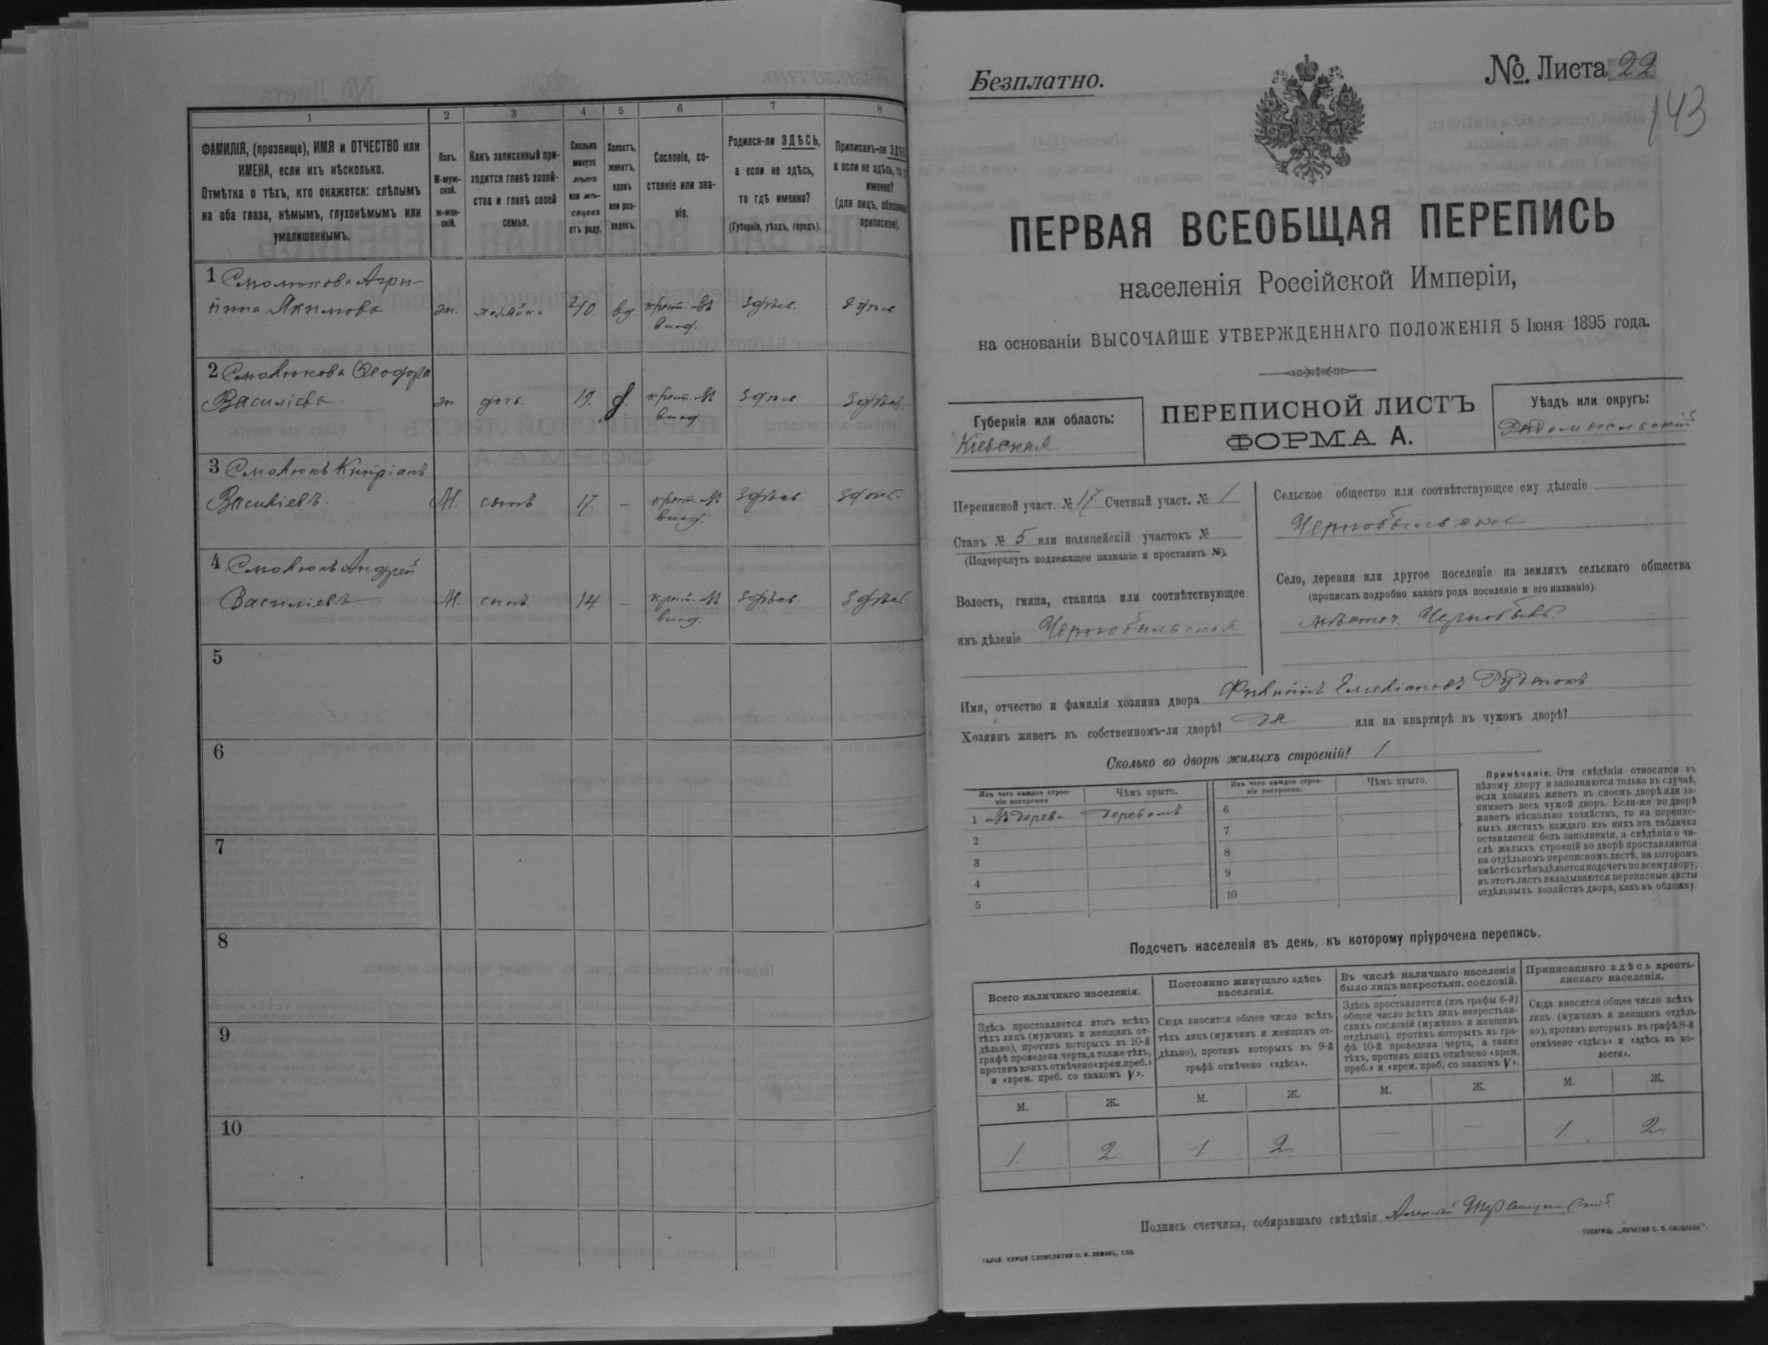 1
2
3
4
5
6
7
8
ФАМИЛІЯ, (прозвище), ИМЯ и ОТЧЕСТВО или
ИМЕНА, если ихъ нѣсколько.
Отмѣтка о тѣхъ, кто окажется: слѣпымъ
на оба глаза, нѣмымъ, глухонѣмымъ или
умалишеннымъ.
Полъ.
М-муж-
ской.
ж-жен-
скій.
Какъ записанный при-
ходится главѣ хозяй-
ства и главѣ своей
семьи.
Сколько
минуло
лѣтъ
или мѣ-
сяцевъ
отъ роду.
Холостъ,
женатъ,
вдовъ
или раз-
веденъ.
Сословіе, со-
стояніе или зва-
ніе.
Родился-ли ЗДѢСЬ,
а если не здѣсь,
то гдѣ именно?
(Губернія, уѣздъ, городъ).
Приписанъ-ли
а если не здѣсь, то
именно?
(для лицъ,
припискою)
1
Якимова
жн.
хозяйка
40.
вд.
крест. изъ
влад.
Здѣсь
Здѣсь
2
Василіева
жн.
дочь.
19.
крест. изъ
влад.
Здѣсь
Здѣсь
3
Василіевъ.
М.
сынъ
17.
–
крест. изъ
влад.
Здѣсь
Здѣсь
4
Андрей
Василіевъ
М.
сынъ
14
–
крест. изъ
влад.
Здѣсь
Здѣсь
5
6
7
8
9
10
Безплатно.
№. Листа 22
143
ПЕРВАЯ ВСЕОБЩАЯ ПЕРЕПИСЬ
населенія Россійской Имперіи,
на основаніи ВЫСОЧАЙШЕ УТВЕРЖДЕННАГО ПОЛОЖЕНІЯ 5 Іюня 1895 года.
Губернія или область:
Кіевская
ПЕРЕПИСНОЙ ЛИСТЪ
ФОРМА А.
Уѣздъ или округъ:
Радомысльскій
Переписной участ. № 17. Счетный участ. № 1
Станъ № 5 или полицейскій участокъ №
(Подчеркнуть подлежащее названіе и проставить №).
Волость, гмина, станица или соотвѣтствующее
имъ дѣленіе Чернобыльская
Сельское общество или соотвѣтствующее ему дѣленіе
Чернобыльское
Село, деревня или другое поселеніе на земляхъ сельскаго общества
(прописать подробно какого рода поселеніе и его названіе).
мѣстеч. Чернобыль.
Имя, отчество и фамилія хозяина двора Емеліановъ Руденокъ
Хозяинъ живетъ въ собственномъ-ли дворѣ? Да или на квартирѣ въ чужомъ дворѣ?
Сколько во дворѣ жилыхъ строеній? 1.
Изъ чего каждое строе-
ніе построено
Чѣмъ крыто.
Изъ чего каждое строе-
ніе построено.
Чѣмъ крыто.
1 изъ дерева деревомъ.
2
3
4
5
6
7
8
9
10
Примѣчаніе. Эти свѣдѣнія относятся къ
цѣлому двору и заполняются только въ случаѣ,
если хозяинъ живетъ въ своемъ дворѣ или за-
нимаетъ весь чужой дворъ. Если-же во дворѣ
живетъ нѣсколько хозяйствъ, то на перепис-
ныхъ листахъ каждаго изъ нихъ эта табличка
оставляется безъ заполненія, а свѣдѣнія о чи-
слѣ жилыхъ строеній во дворѣ проставляются
на отдѣльномъ переписномъ листѣ, на которомъ
вмѣстѣ съ тѣмъ дѣлается подсчетъ по всему двору;
въ этотъ листъ вкладываются переписные листы
отдѣльныхъ хозяйствъ двора, какъ въ обложку.
Подсчетъ населенія въ день, къ которому пріурочена перепись.
Всего наличнаго населенія.
Здѣсь проставляется итогъ всѣхъ
тѣхъ лицъ (мужчинъ и женщинъ от-
дѣльно), противъ которыхъ въ 10-й
графѣ проведена черта, а также тѣхъ,
противъ коихъ отмѣчено «врем. преб.»
и «врем. преб. со знакомъ V».
Постоянно живущаго здѣсь
населенія.
Сюда вносится общее число всѣхъ
тѣхъ лицъ (мужчинъ и женщинъ от-
дѣльно), противъ которыхъ въ 9-й
графѣ отмѣчено «здѣсь».
Въ числѣ наличнаго населенія
было лицъ некрестьян. сословій.
Здѣсь проставляется (изъ графы 6-й)
общее число всѣхъ лицъ некрестьян-
скихъ сословій (мужчинъ и женщинъ
отдѣльно), противъ которыхъ въ гра-
фѣ 10-й проведена черта, а также
тѣхъ, противъ коихъ отмѣчено «врем.
преб.» и «врем. преб. со знакомъ V».
Приписаннаго здѣсь кресть-
янскаго населенія.
Сюда вносится общее число всѣхъ
лицъ (мужчинъ и женщинъ отдѣль-
но), противъ которыхъ въ графѣ 8-й
отмѣчено «здѣсь» и «здѣсь въ во-
лости».
М. Ж. М. Ж. М. Ж. М. Ж.
1 2 1 2 — — 1. 2.
Подпись счетчика, собиравшаго свѣдѣнія
ГАЛЬВ. КЛИШЕ СЛОВОЛИТНИ О. И. ЛЕМАНЪ, СПБ
ТОВАРИЩ. „ПЕЧАТНЯ С. П. ЯКОВЛЕВА“.